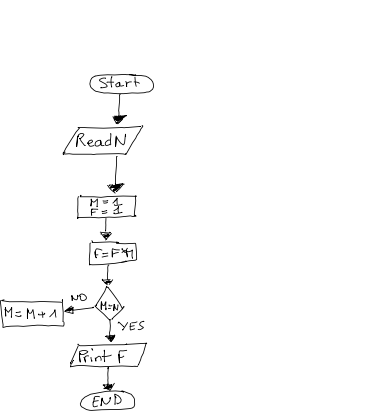 Start
ReadN
M=1
F=1
F=F*M
M=N
NO
M=M+1
YES
Print F
END